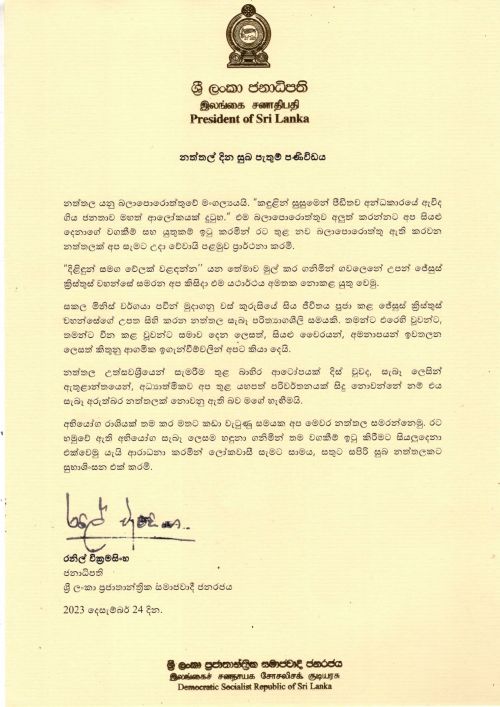 ශ්‍රී ලංකා ජනාධිපති
இலங்கை சனாதிபதி
President of Sri Lanka
නත්තල් දින සුබ පැතුම් පණිවිඩය
නත්තල යනු බලාපොරොත්තුවේ මංගල්‍යයයි. “කඳුළින් සුසුමෙන් පීඩිතව අන්ධකාරයේ ඇවිද
ගිය ජනතාව මහත් ආලෝකයක් දුටුහ.” එම බලාපොරොත්තුව අලුත් කරන්නට අප සියළු
දෙනාගේ වගකීම් සහ යුතුකම් ඉටු කරමින් රට තුළ නව බලාපොරොත්තු ඇති කරවන
නත්තලක් අප සැමට උදා වේවායි පළමුව ප්‍රාර්ථනා කරමි.
“දිළිඳුන් සමග වේලක් වළඳන්න” යන තේමාව මුල් කර ගනිමින් ගවලෙනේ උපන් ජේසුස්
ක්‍රිස්තුස් වහන්සේ සමරන අප කිසිදා එම යථාර්ථය අමතක නොකළ යුතු වෙමු.
සකල මිනිස් වර්ගයා පවින් මුදාගනු වස් කුරුසියේ සිය ජීවිතය පූජා කළ ජේසුස් ක්‍රිස්තුස්
වහන්සේගේ උපත සිහි කරන නත්තල සැබෑ පරිත්‍යාගශීලී සමයකි. තමන්ට එරෙහි වූවන්ට,
තමන්ට වින කළ වූවන්ට සමාව දෙන ලෙසත්, සියළු වෛරයන්, අමනාපයන් ඉවතලන
ලෙසත් කිතුනු ආගමික ඉගැන්වීම්වලින් අපට කියා දෙයි.
නත්තල උත්සවශ්‍රීයෙන් සැමරීම තුළ බාහිර ආටෝපයක් දිස් වුවද, සැබෑ ලෙසින්
ඇතුළාන්තයෙන්, අධ්‍යාත්මිකව අප තුළ යහපත් පරිවර්තනයක් සිදු නොවන්නේ නම් එය
සැබෑ අරුත්බර නත්තලක් නොවනු ඇති බව මගේ හැඟීමයි.
අභියෝග රාශියක් තම කර මතට කඩා වැටුණු සමයක අප මෙවර නත්තල සමරන්නෙමු. රට
හමුවේ ඇති අභියෝග සැබෑ ලෙසම හඳුනා ගනිමින් තම වගකීම් ඉටු කිරීමට සියලුදෙනා
එක්වෙමු යැයි ආරාධනා කරමින් ලෝකවාසී සැමට සාමය, සතුට සපිරි සුබ නත්තලකට
සුභාශිංසන එක් කරමි.
රනිල් වික්‍රමසිංහ
ජනාධිපති
ශ්‍රී ලංකා ප්‍රජාතාන්ත්‍රික සමාජවාදී ජනරජය
2023 දෙසැම්බර් 24 දින.
ශ්‍රී ලංකා ප්‍රජාතාන්ත්‍රික සමාජවාදී ජනරජය
இலங்கைச் சனநாயக சோசலிசக் குடியரசு
Democratic Socialist Republic of Sri Lanka